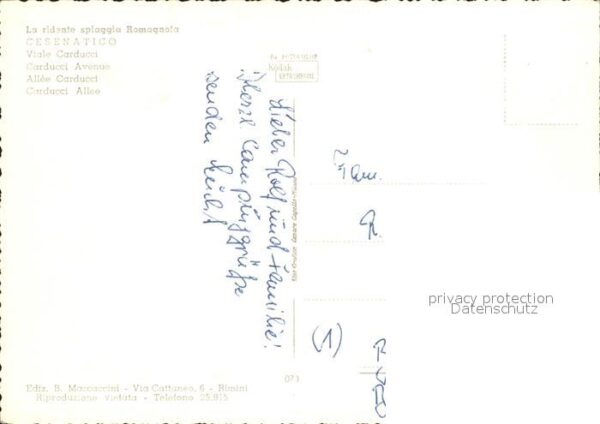 La ridente spiaggia Romagnola
CESENATICO
Viale Carducci
Carducci Avenue
Allée Carducci
Carducci Allee
Kodak
Lieber Rolf und Familie!
Herzl. Campinggrüße
senden
Fam.
R.
(1)
privacy protection
Datenschutz
073
Ediz. B. Marcaccini - Via Cattaneo, 6 - Rimini
Riproduzione vietata - Telefono 25.815